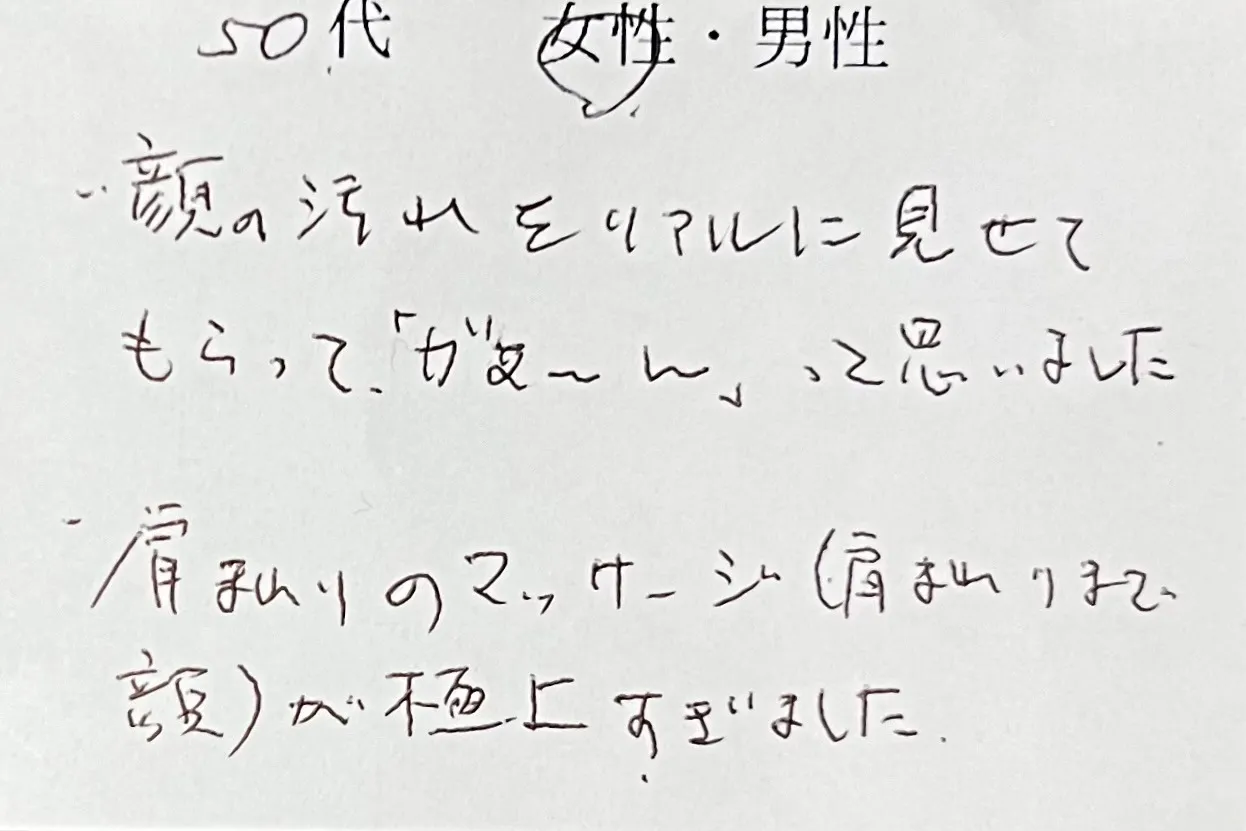 50代 女性・男性
・顔の汚れをリアルに見せて
もらって、「がぁ〜ん」って思いました
・肩まわりのマッサージ(肩まわりまで
顔)が極上すぎました.